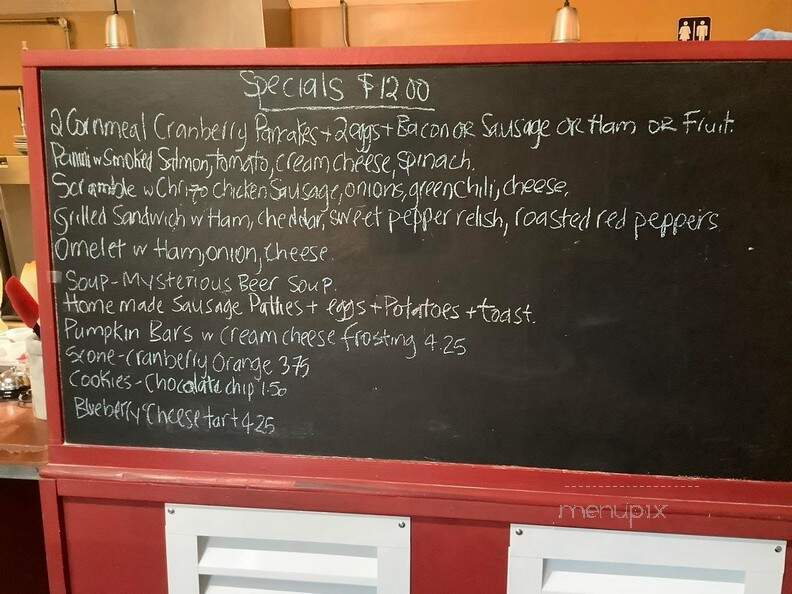 Specials $12.00
2 Cornmeal Cranberry Pancakes + 2 eggs + Bacon or Sausage or Ham or Fruit.
Panini w Smoked Salmon, tomato, cream cheese, spinach.
Scramble w Chrizo chicken Sausage, onions, green chili, cheese.
Grilled Sandwich w Ham, cheddar, sweet pepper relish, roasted red peppers
Omelet w Ham, onion, cheese.
Soup - Mysterious Beer Soup.
Home made Sausage Patties + eggs + Potatoes + toast.
Pumpkin Bars w cream cheese frosting 4.25
Scone - cranberry Orange 3.75
Cookies - Chocolate chip 1.50
Blueberry Cheese tart 4.25
menupix